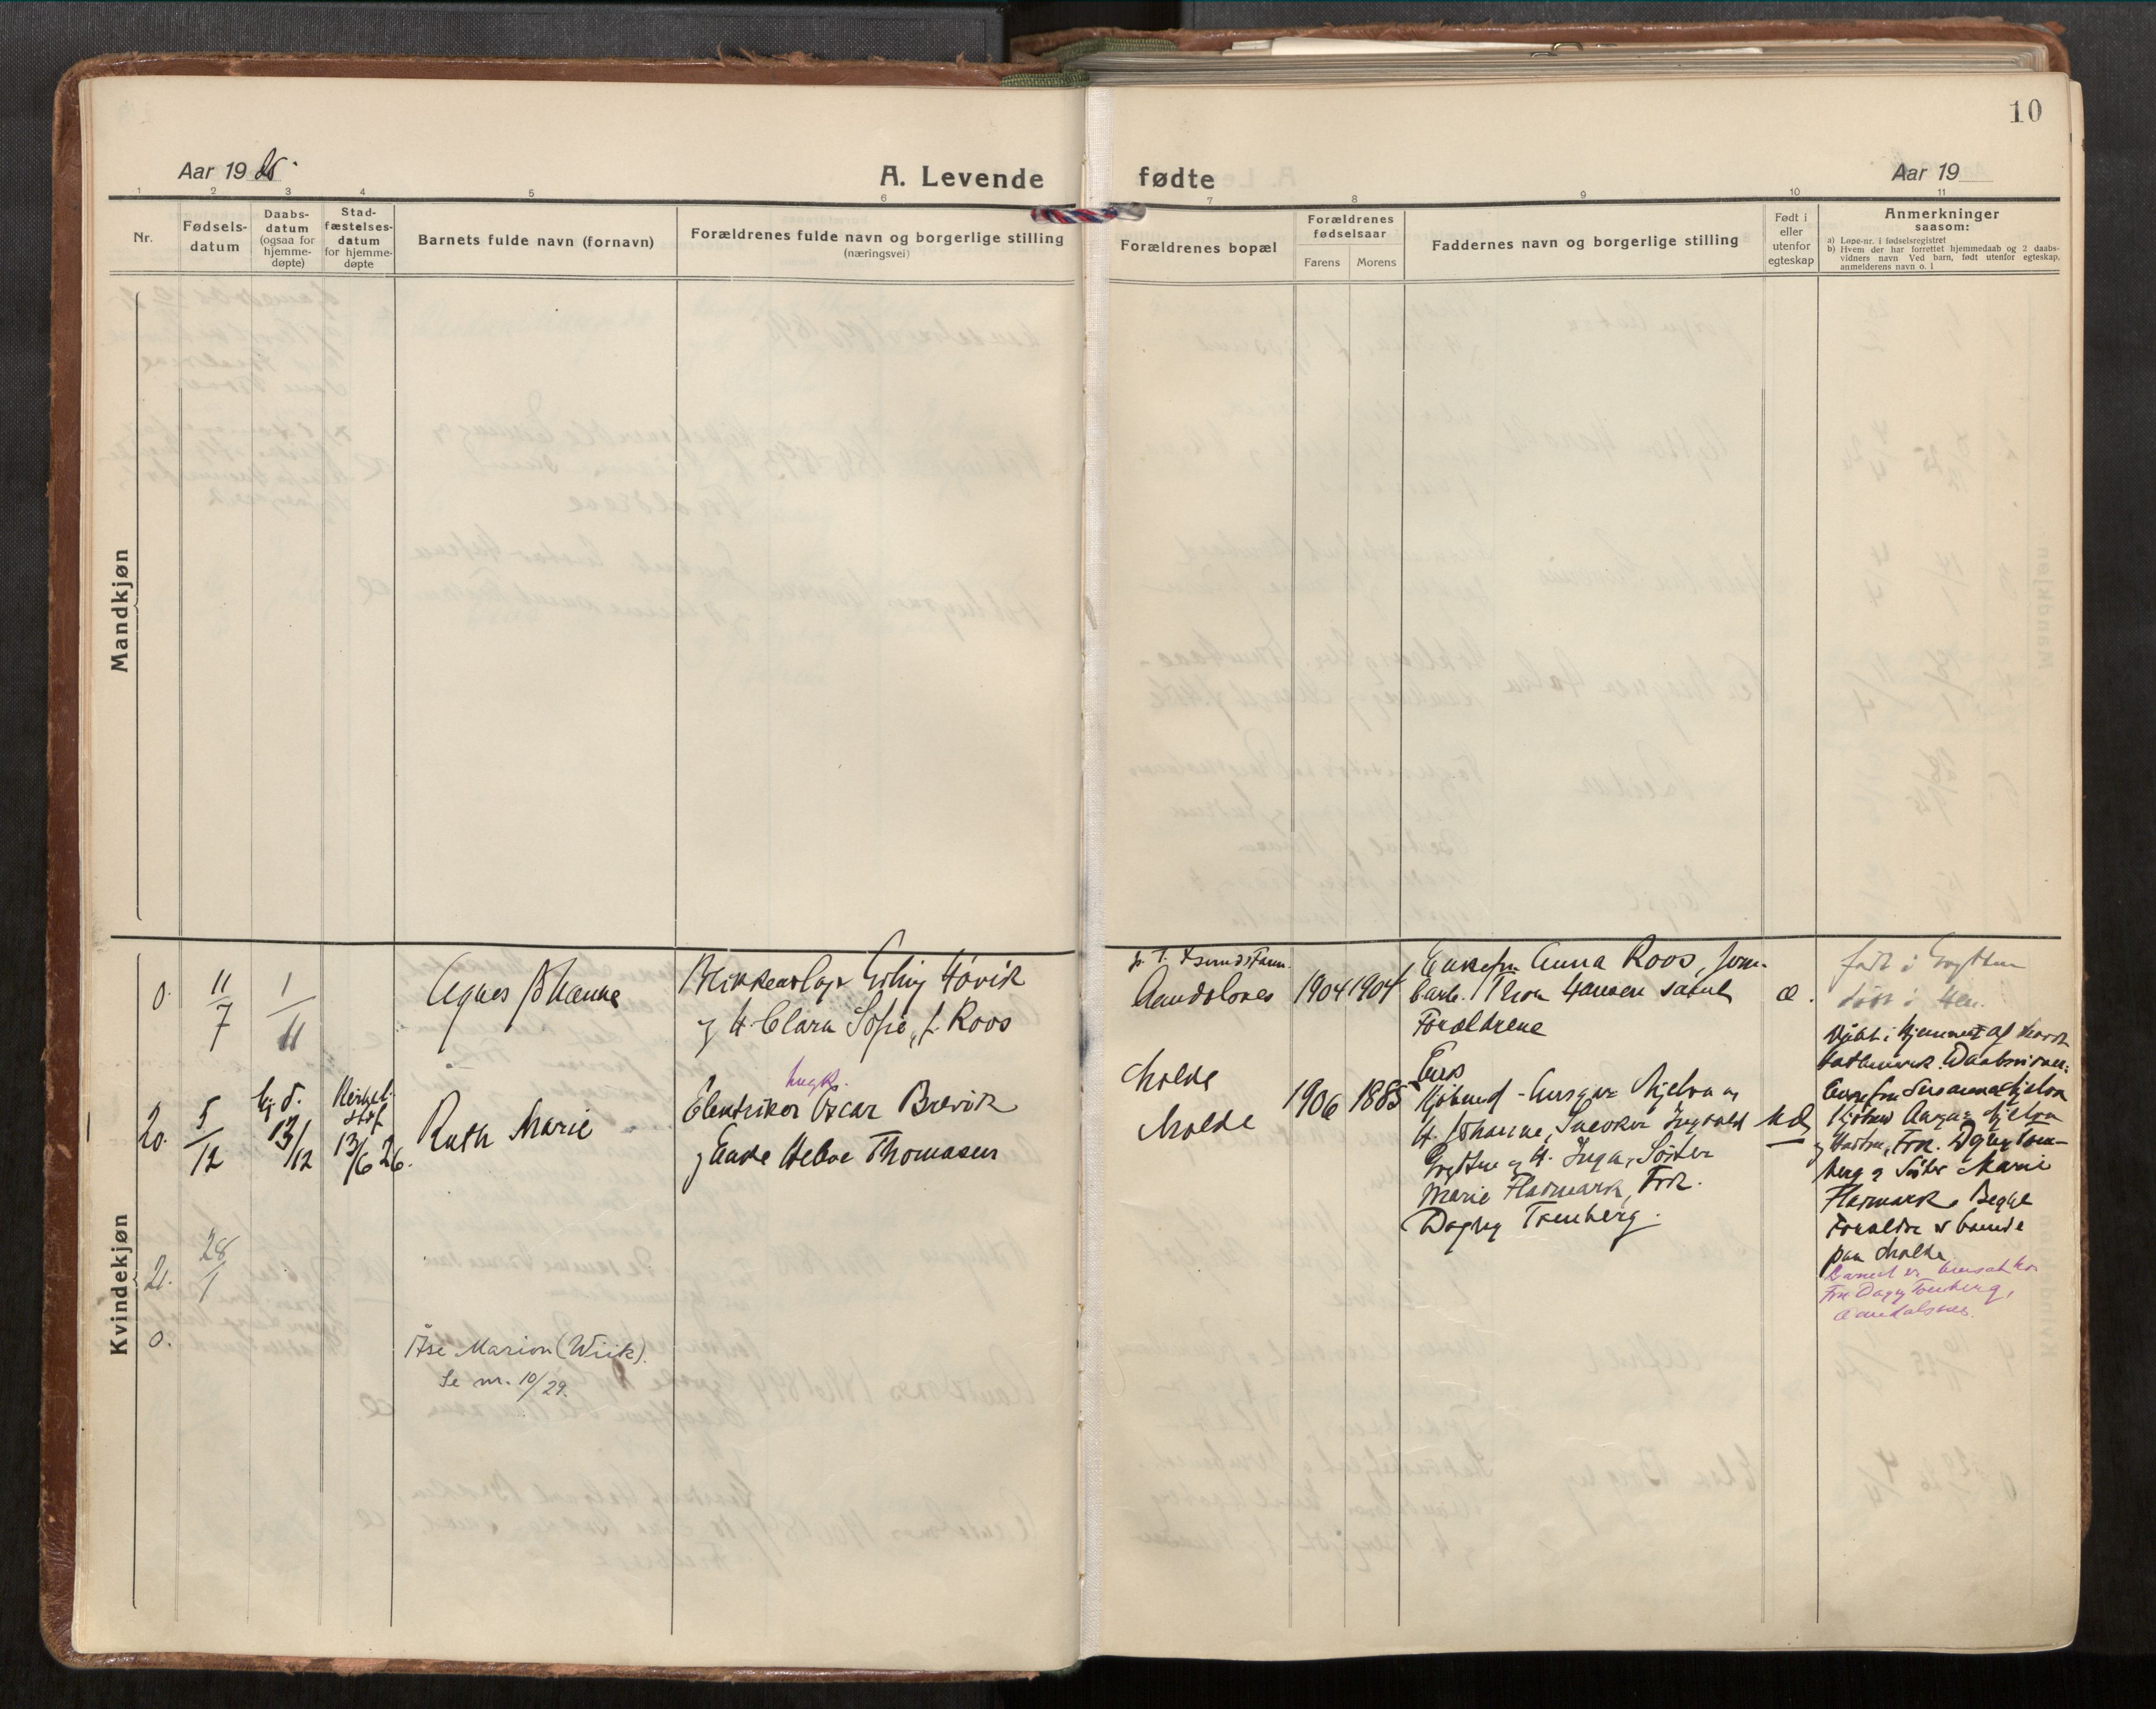 10
Aar 19 25.
A. Levende
fødte
Aar 19
1 2 3 4 5 6 7 8 9 10 11
Nr.
Fødsels-
datum
Daabs-
datum
(ogsaa for
hjemme-
døpte)
Stad-
fæstelses-
datum
for hjemme-
døpte
Barnets fulde navn (fornavn)
Forældrenes fulde navn og borgerlige stilling
(næringsvei)
Forældrenes bopæl
Forældrenes
fødselsaar
Farens
Morens
Faddernes navn og borgerlige stilling
Født i
eller
utenfor
egteskap
Anmerkninger
saasom:
a) Løpe-nr. i fødselsregistret
b) Hvem der har forrettet hjemmedaab og 2 daabs-
vidners navn Ved barn, født utenfor egteskap,
anmelderens navn o. l
Mandkjøn
Kvindekjøn
0.
11/7
1/11
Agnes Johanne
Blikkenslager Erling Hovik
og H. Clara Sofie, f. Roos
Aandalsnes
1904 1904
Enkefru Anna Roos,
Hansen samt
Forældrene
æ.
født i Grytten
døbt i Hen.
20.
5/12
Hj. d.
13/12
Kirkel.
stdf.
13/6 26.
Ruth Marie
ungk.
Elektriker Oscar Brevik
og Enke Helve Thomasen
Molde
Molde
1906 1885
Enke
Kjøbmd. Ansgar Hjelva og
H. Johanne, Snekker Ingvald
Grytten og H. Inga, Søster
Marie Flatmark, Frk.
Dagny Tomberg.
u. æ.
Døbt i Hjemmet af
Daabsvidner:
Enkefru Susanna Hjelva
Kjøbmd Ansgar Hjelva
og Hustru, Frk. Dagny Tom-
berg og Søster Marie
Flatmark. Begge
Forældre er boende
paa Molde
Barnet er bortsat hos
Frk Dagny Tomberg,
Aandalsnes.
21.
28/1
0.
Åse Marion (Wiik).
Se nr. 10/29.